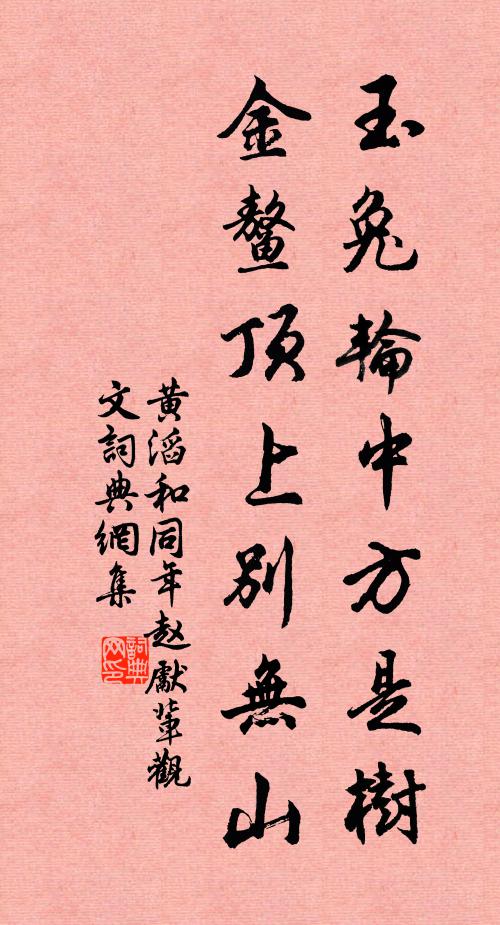 玉兔輪中方是樹
金鰲頂上別無山
黄滔和同年赵獻輩觀
文詞典網集
詞典
网印